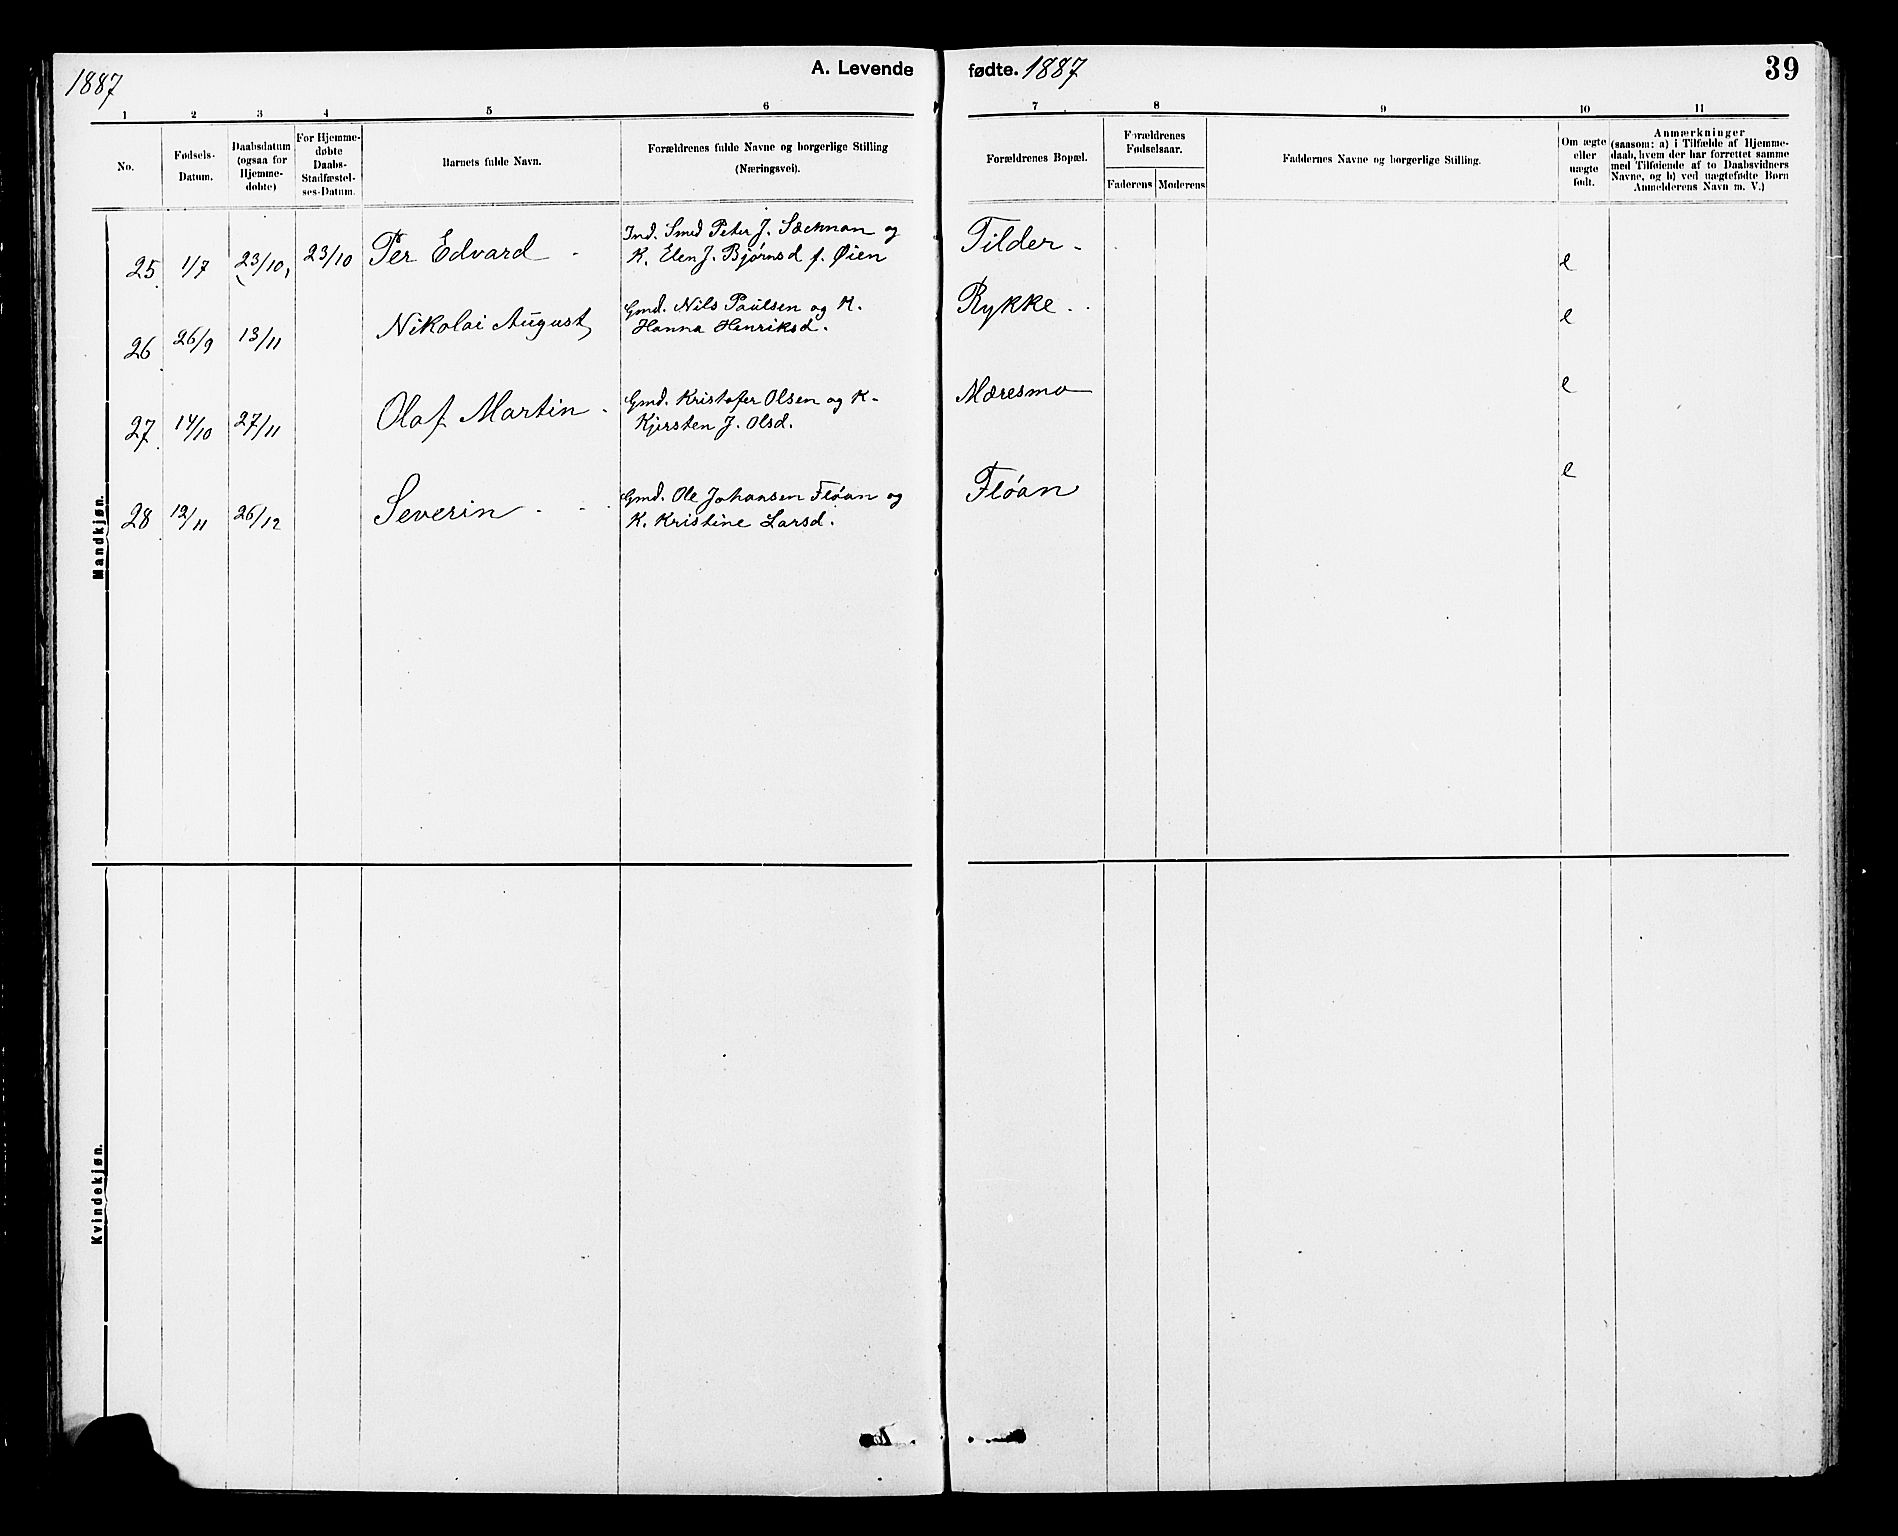 1887
A. Levende fødte. 1887
39
1 2 3 4 5 6 7 8 9 10 11
No.
Fødsels-
Datum.
Daabsdatum
(ogsaa for
Hjemme-
døbte)
For Hjemme-
døbte
Daabs-
Stadfæstel-
ses-Datum.
Barnets fulde Navn.
Forældrenes fulde Navne og borgerlige Stilling
(Næringsvei).
Forældrenes Bopæl.
Forældrenes
Fødselsaar.
Faderens Moderens
Faddernes Navne og borgerlige Stilling.
Om ægte
eller
uægte
født.
Anmærkninger
(saasom: a) i Tilfælde af Hjemme-
daab, hvem der har forrettet samme
med Tilføiende af to Daabsvidners
Navne, og b) ved uægtefødte Børn
Anmelderens Navn m. V.)
Mandkjøn.
25 1/7 23/10, 23/10 Per Edvard - Ind. Smed Peter J. og
K. Elen J. Bjørnsd f. Øien
Tilder - e
26 26/9 13/11 Nikolai August, Gmd. Nils Paulsen og K.
Hanna Henriksd.
Rykke - e
27 14/10 27/11 Olaf Martin - Gmd. Kristofer Olsen og K.
Kjersten J. Olsd.
Mæresmo e
28 12/11 26/12 Severin - Gmd. Ole Johansen Fløan og
K. Kristine Larsd.
Fløan e
Kvindekjøn.